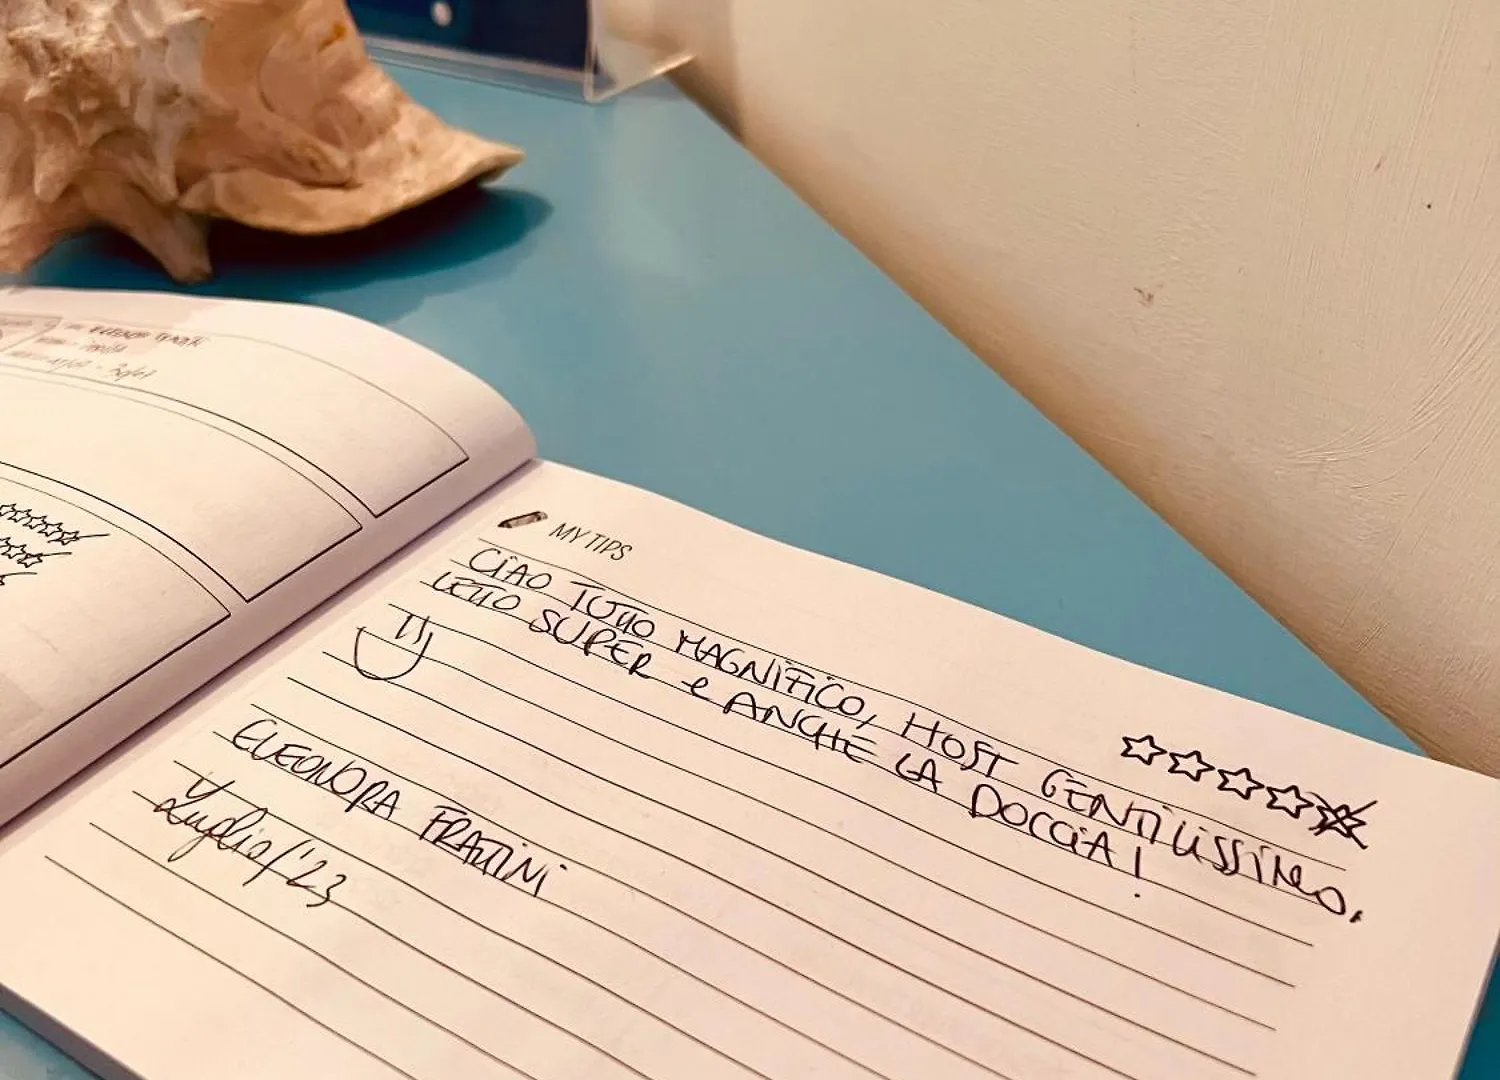 MY TIPS
CIAO TUTTO MAGNIFICO, HOST GENTILISSIMO,
LETTO SUPER e ANCHE LA DOCCIA!
ELEONORA FRATTINI
Luglio/'23